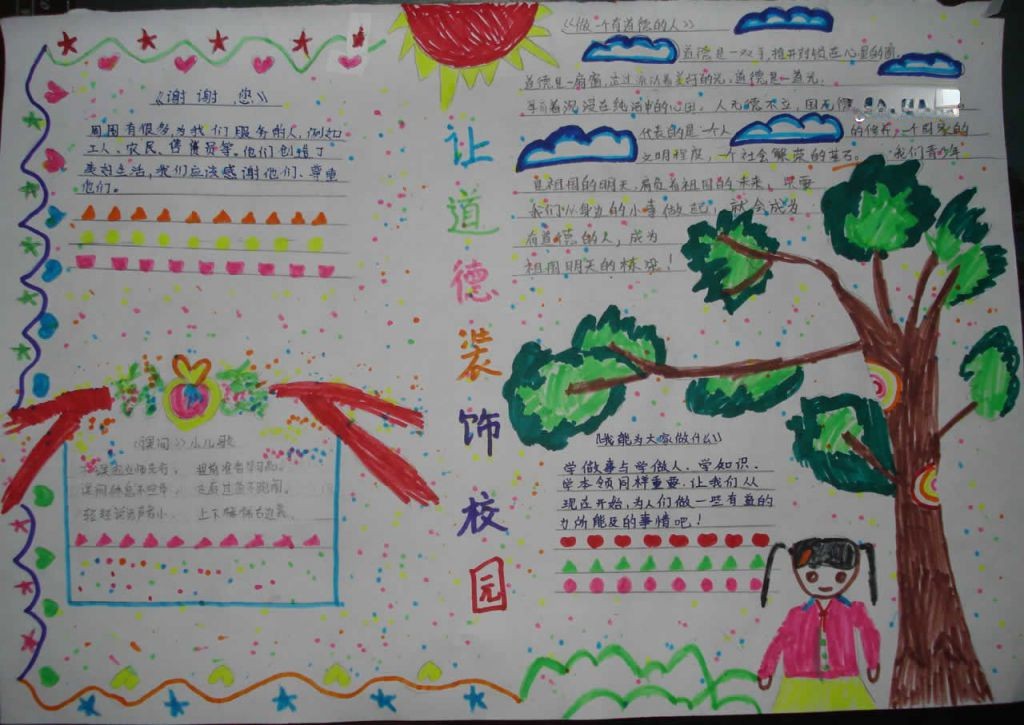 《谢谢您》
周围有很多为我们服务的人,例如
工人、农民、售货员等。他们创造了
美好生活,我们应该感谢他们、尊重
他们。
《课间》小儿歌
轻轻说话声音小、 上下楼梯右边走
让道德装饰校园
《做一个有道德的人》
道德是一双手,推开封锁在心里的窗,
道德是一扇窗,
人无德不立,国无德
代表的是一个人 的修养,一个国家的
文明程度,一个社会繁荣的基石。 我们青少年
是祖国的明天,肩负着祖国的未来,只要
我们从身边的小事做起,就会成为
有道德的人,成为
祖国明天的栋梁!
《我能为大家做什么》
学做事与学做人、学知识、
学本领同样重要,让我们从
现在开始,为人们做一些有益的
力所能及的事情吧!